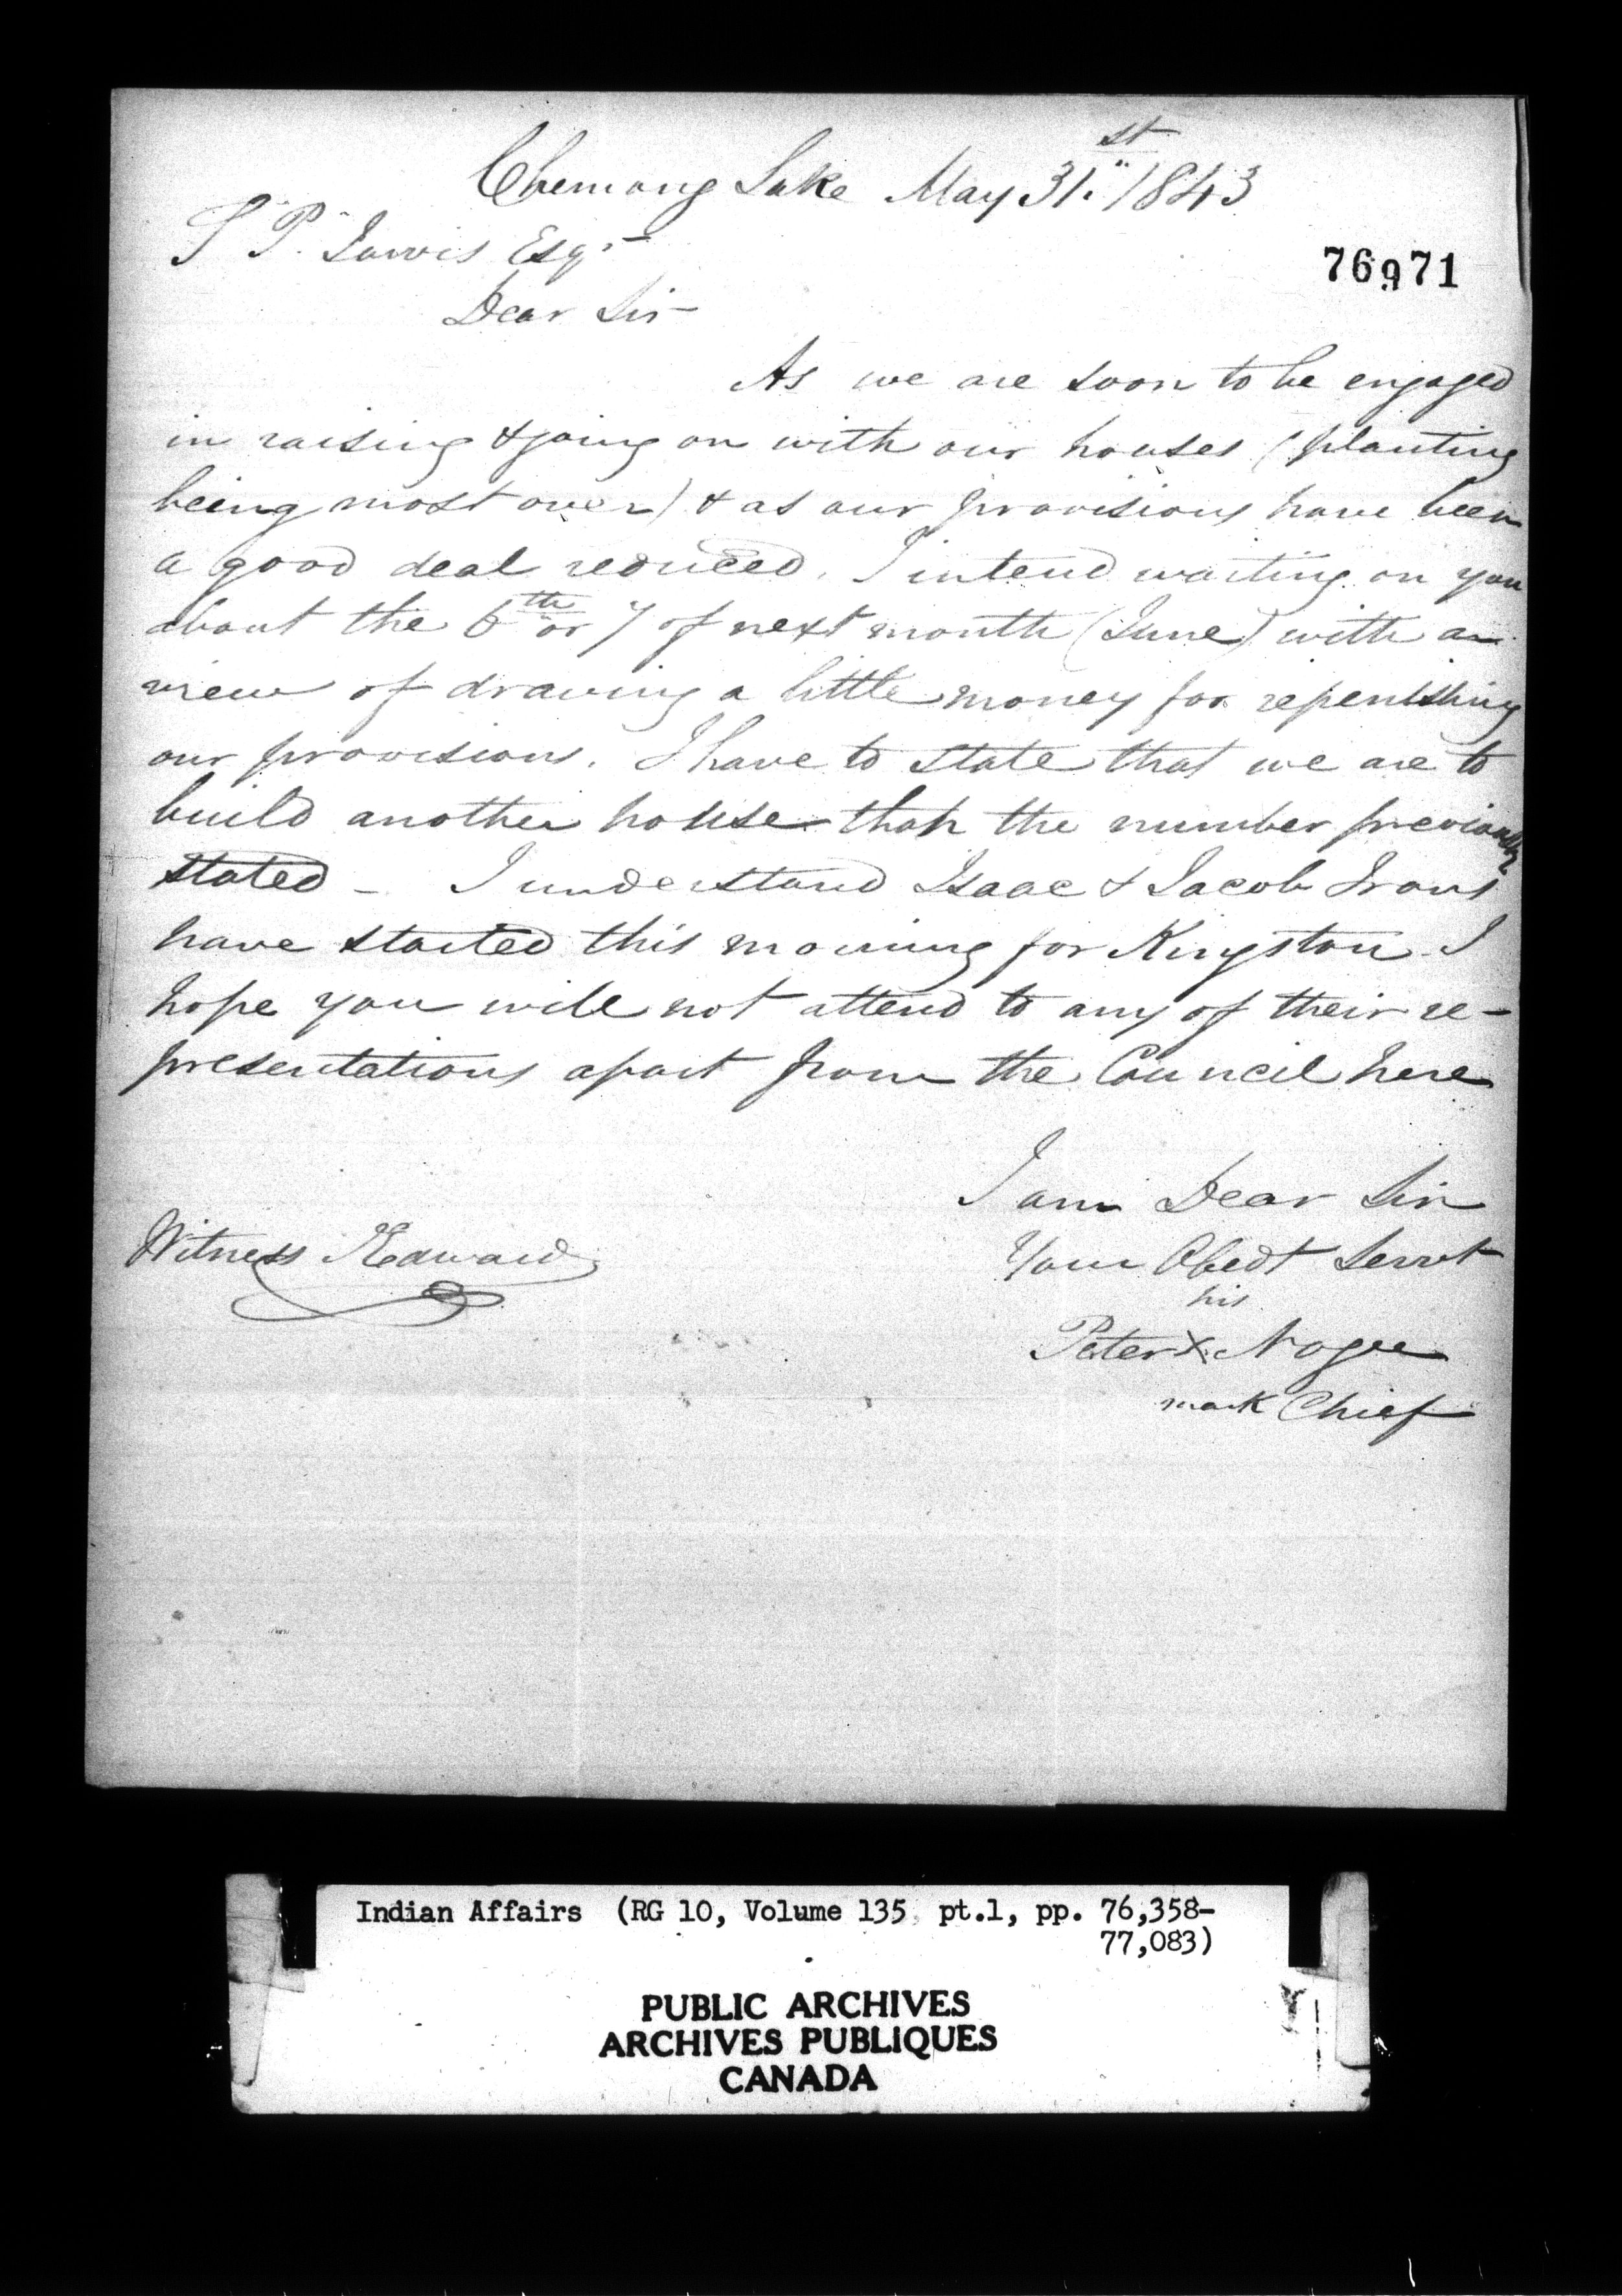 Chemong Lake May 31st 1843
S P Jarvis Esqr
76971
Dear Sir
As we are soon to be engaged
in raising & going on with our houses (planting
being most over) & as our provisions have been
a good deal reduced. I intend waiting on you
about the 6th or 7 of next month (June) with a
view of drawing a little money for repenishing
our provisions. I have to state that we are to
build another house than the number previously
stated - I understand Isaac & Jacob Irons
have started this morning for Kingston. I
hope you will not attend to any of their re-
presentations apart from the Council here
I am Dear Sir
Your Obedt Servt
Witness Edward
his
Peter X Nogee
mark Chief
Indian Affairs (RG 10, Volume 135 pt.1, pp. 76,358-
77,083)
PUBLIC ARCHIVES
ARCHIVES PUBLIQUES
CANADA